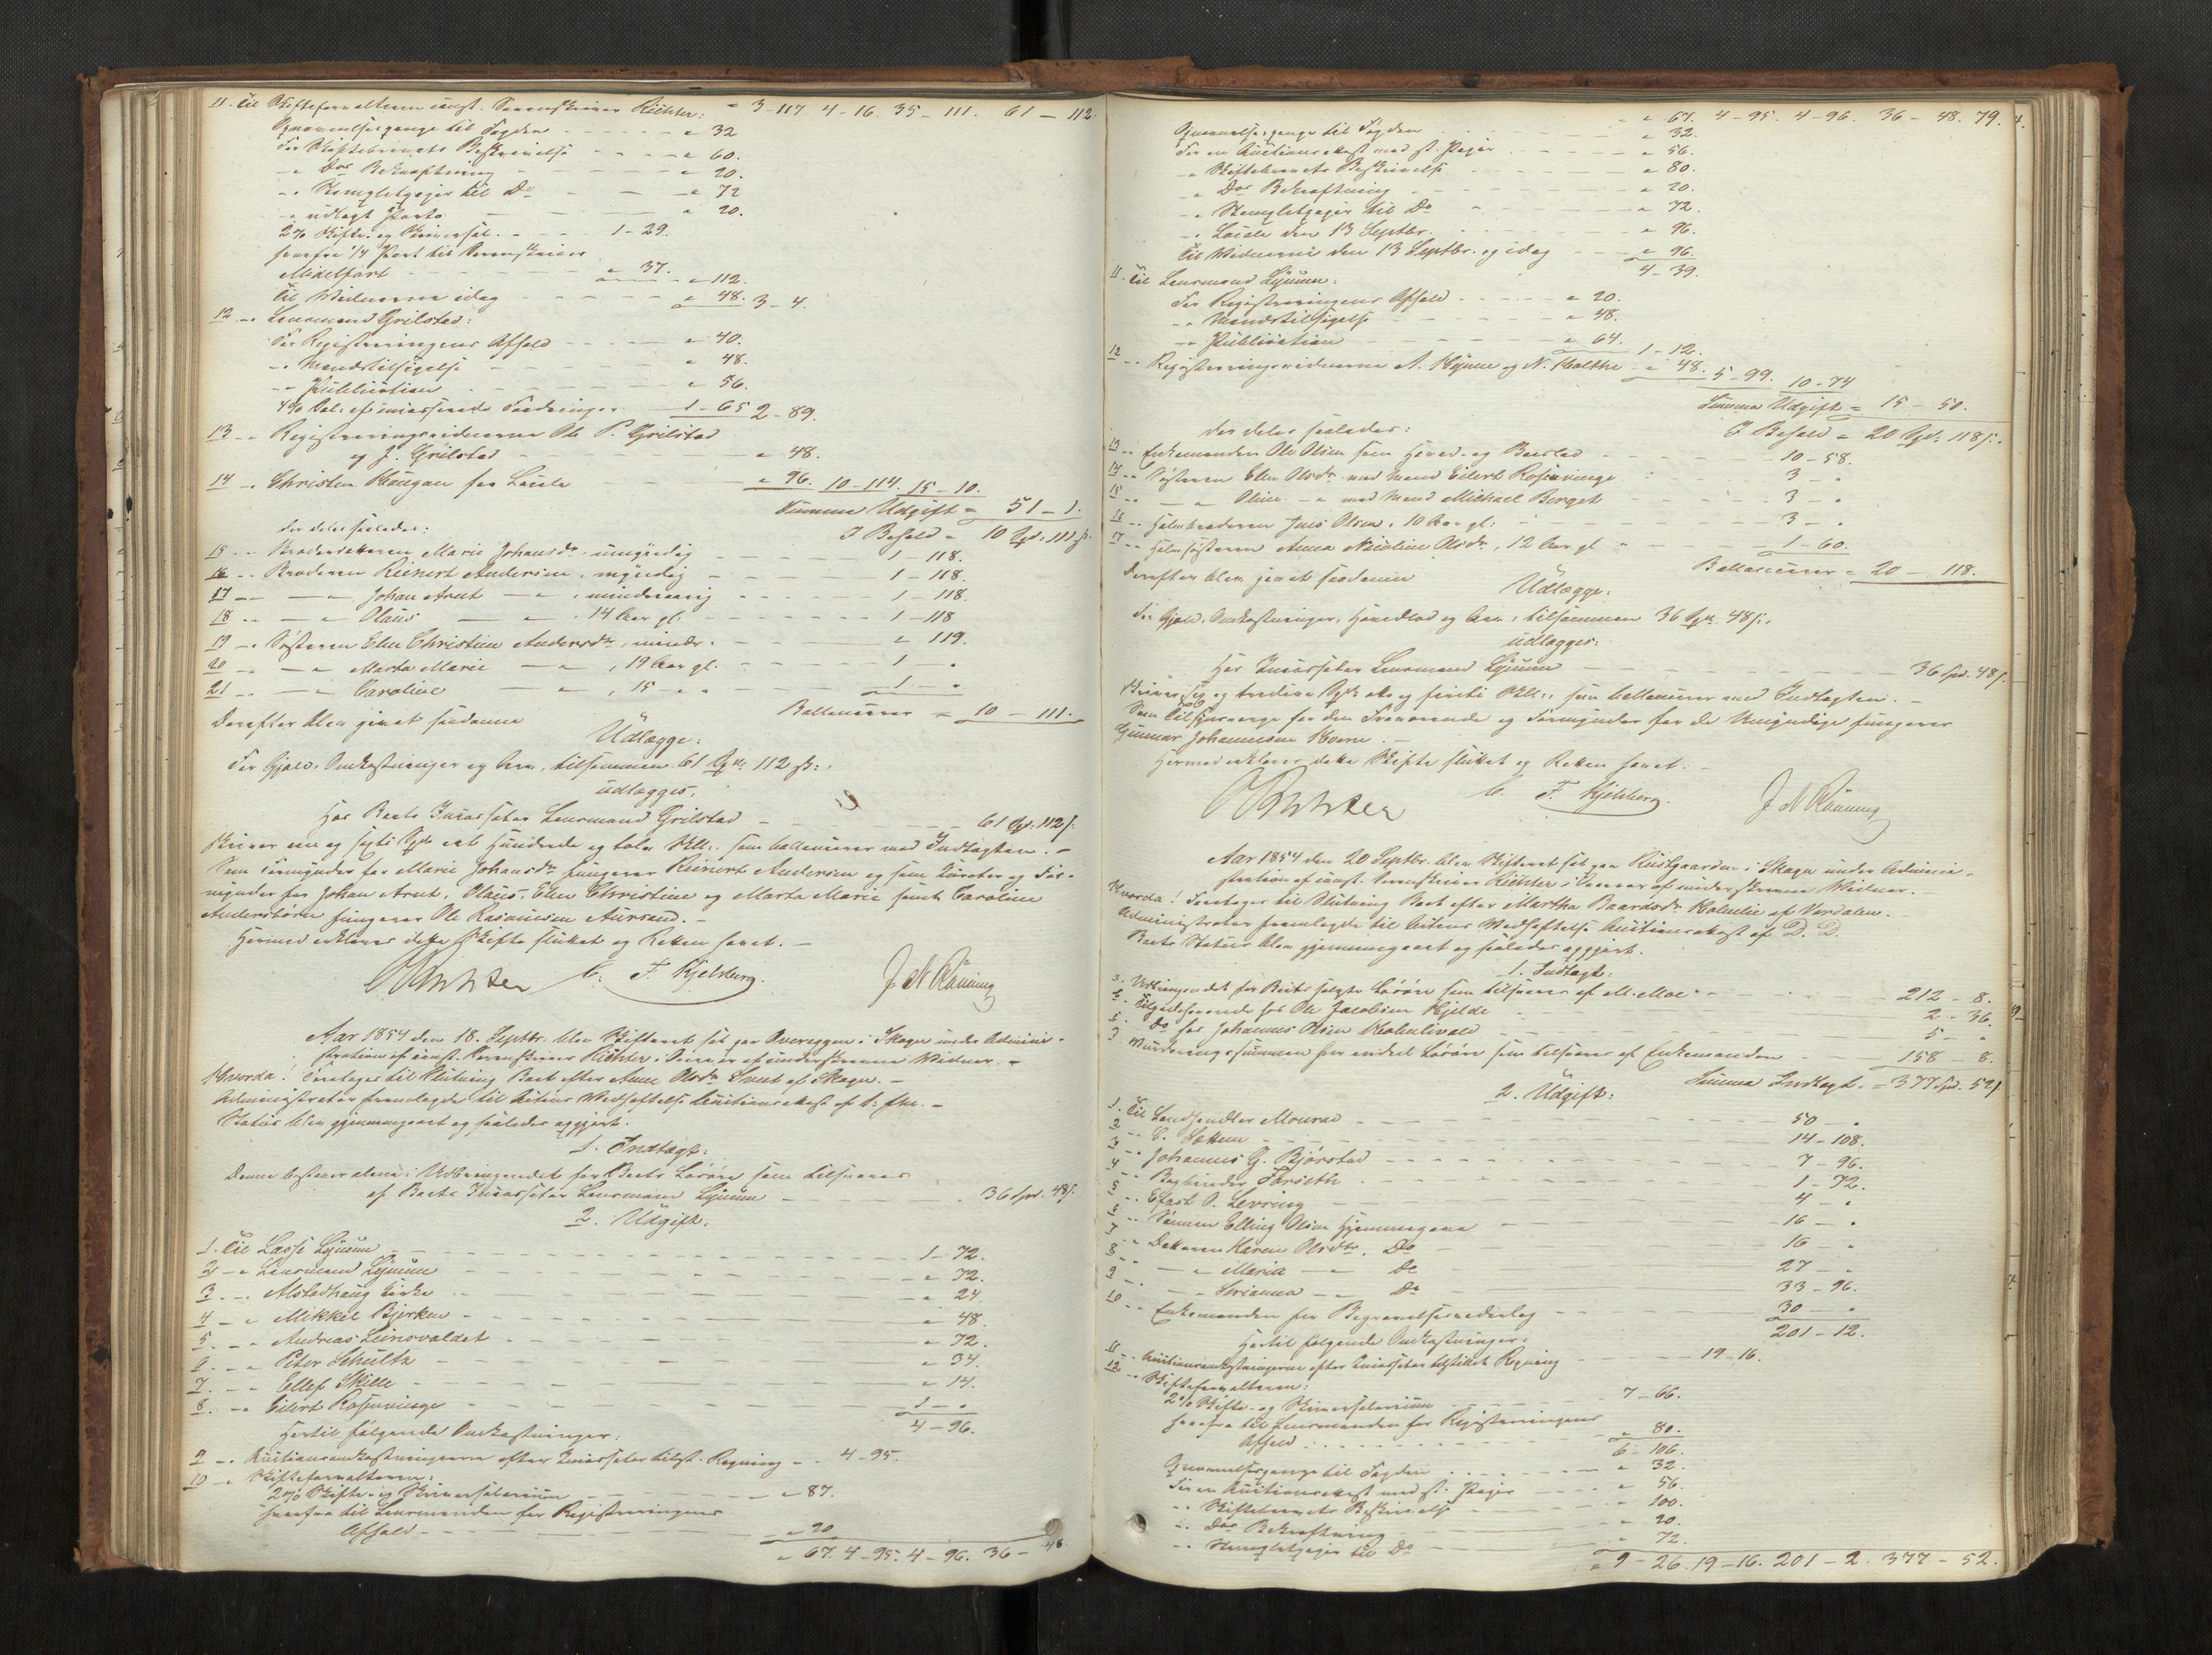 11. Til Skifteforvalteren const. Sorenskriver Richter: " 3-117. 4-16. 35-111. 61-112.
Gjennemsynspenge til Fogden - - - " 32
For Skiftebrevets Beskrivelse - - " 60.
-" Dos Bekræftning - - " 20.
-" Stemplet papir til Do - - " 72
-" udlagt Porto - - " 20.
2% Skifte- og Skriversal. - - 1-29.
herfra 1/4 Part til Sorenskriver
Midelfart - - " 37. " 112.
Til Vidnerne idag - - " 48. 3-4.
12 -" Lensmand Grilstad:
For Registreringens Afhold - - " 40.
-" Mændstilsigelse - - " 48.
-" Publication - - " 56.
4% Sal: af incasserede Fordringer 1-65 2-89.
13 -" Registreringsvidnerne Ole P. Grilstad
og J. Grilstad - " 48.
14 -" Christen Haugan for Locale " 96. 10-114. 15-10.
Summa Udgift = 51-1.
der deles saaledes: I Behold = 10 Spd. 111 s.
15 -" Marie Johansdr umyndig 1-118.
16 -" Broderen Reinert Andersen, myndig 1-118.
17 -" -" Johan Arnt -" , mindreaarig 1-118.
18 -" -" Olaus -" , 14 Aar gl. 1-118
19 -" Søsteren Elen Christine Andersdr, mindr. " 119.
20 -" -" Marta Marie -" , 19 Aar gl. 1-"
21 -" -" Caroline -" , 15 -" 1-"
Ballancerer = 10-111.
Derefter blev gjort saadanne
Udlægge:
For Gjæld, Omkostninger og Arv, tilsammen 61 Spd 112 s:,
udlægges,
Hos Boets Incassator Lensmand Grilstad - - 61 Spd. 112 s.
skriver een og sexti Spd eet hundrede og tolv Skill:, som ballancerer med Indtægten. -
Som Formynder for Marie Johansdr fungerer Reinert Andersen og som Curator og For-
mynder for Johan Arnt, Olaus, Elen Christine og Marta Marie samt Caroline
Andersbørn fungerer Ole Rasmussen Aursand. -
Hermed erklæres dette Skifte sluttet og Retten hævet. -
Richter C. F. Kjelsberg. J N Rønning
Aar 1854 den 18. Septbr. blev Skifteret sat paa Overeggen i Skogn under Admini-
stration af const. Sorenskriver Richter i Overvær af underskrevne Vidner. -
Hvorda! Foretoges til Slutning Boet efter Anne Olsdr af Skogn. -
Administrator fremlagde til Actens Vedhæftelse Auctionsakast af
Status blev gjennemgaaet og saaledes opgjort.
1. Indtægt:
Denne bestaaer alene i Udbringendet for Boets Løsøre som tilsvares
af Boets Incassator Lensmand Lynum - - 36 Spd. 48 s.
2. Udgift:
1. Til Lasse Lynum 1-72.
2 -" Lensmand Lynum " 72.
3 -" Alstadhaug Kirke " 24
4 -" Mikkel Bjerken " 48.
5 -" Andreas " 72.
6 -" Peter Schultz " 34.
7 -" Ellef Skille " 14.
8 -" Eilert Rosvinge 1-"
4-96.
Hertil følgende Omkostninger:
9 -" Auctionsomkostningerne efter Incassator tilst. Regning - 4-95.
10 -" Skifteforvalteren:
2% Skifte- og Skriversalarium - - " 87.
herfra til Lensmanden for Registreringens
Afhold - - " 20
" 67. 4-95. 4-96. 36-48.
" 67. 4-95. 4-96. 36-48. 79.
Gjennemsynspenge til Fogden " 32.
For en Auctionsakast med st. Papir " 56.
-" Skiftebrevets Beskrivelse " 80.
-" Dos Bekræftning " 20.
-" Stemplet papir til Do " 72.
-" Locale den 13 Septbr. " 96.
Til Vidnerne den 13 Septbr. og idag " 96.
4-39.
11. Til Lensmand Lynum:
For Registreringens Afhold " 20.
-" Mændstilsigelse " 48.
-" Publication " 64. 1-12.
12 -" Registreringsvidnerne A. Hynne og N. Holthe " 48. 5-99. 10-74
Summa Udgift = 15-50.
der deles saaledes: I Behold = 20 Spd. 118 s.
13 -" Enkemanden Ole Olsen som Hoved- og Broderlod 10-58.
14 -" Søsteren Elen Olsdr med Mand Eilert Rosvinge 3-"
15 -" -" Oline -" med Mand Michael Borget 3-"
16 -" Halvbroderen Jens Olsen, 10 Aar gl: 3-"
17 -" Halvsøsteren Anna Nicoline Olsdr, 12 Aar gl 1-60.
Ballancerer = 20-118.
Derefter blev gjort saadanne
Udlægge:
For Gjæld, Omkostninger, Hovedlod og Arv, tilsammen 36 Spd 48 s:,
udlægges:
Hos Incassator Lensmand Lynum 36 Spd. 48 s.
skriver sex og tredive Spd otte og firti Skill:, som ballancerer med Indtægten. -
Som Tilsynsværge for den Fraværende og Formynder for de Umyndige fungerer
Gunnar Johannesen Hoem. -
Hermed erklæres dette Skifte sluttet og Retten hævet. -
Richter C. F. Kjelsberg. J N Rønning
Aar 1854 den 20 Septbr. blev Skifteret sat paa Rustgaarden i Skogn under Admini-
stration af const. Sorenskriver Richter i Overvær af underskrevne Vidner. -
Hvorda! Foretoges til Slutning Boet efter Martha Baardsdr Kolulie af Værdalen. -
Administrator fremlagde til Actens Vedhæftelse Auctionsakast af D. D.
Boets Status blev gjennemgaaet og saaledes opgjort.
1. Indtægt:
Udbringendet for Boets solgte Løsøre som tilsvares af M. Moe 212-8.
Tilgodehavende hos Ole Jacobsen Kjelde 2-36.
Do hos Johannes Olsen 5-"
Vurderingssummen for endeel Løsøre som tilsvares af Enkemanden 158-8.
Summa Indtægt = 377 Spd. 52 s
2. Udgift:
1. Til Landhandler Monrad 50-"
2 -" C. Sakken 14-108.
3 -" Johannes G. Bjørstad 7-96.
4 -" Bogbinder Forseth 1-72.
5 -" P. Levring 4-"
6 -" Sønnen Elling Olsen Hjemmegave 16-"
7 -" Datteren Karen Olsdtr. Do 16-"
8 -" -" Maria -" Do 27-"
9 -" -" Serianna -" Do 33-96.
10 -" Enkemanden for Begravelsesudlæg 30-"
201-12.
Hertil følgende Omkostninger:
11 -" Auctionsomkostningerne efter Incassator tilstillet Regning 19-16.
12 -" Skifteforvalteren:
2% Skifte- og Skriversalarium 7-66.
herfra til Lensmanden for Registreringens
Afhold " 80.
6-106.
Gjennemsynspenge til Fogden " 32.
For en Auctionsakast med st. Papir " 56.
-" Skiftebrevets Beskrivelse " 100.
-" Dos Bekræftning " 20.
-" Stemplet papir til Do " 72.
" 9-26. 19-16. 201-2. 377-52.